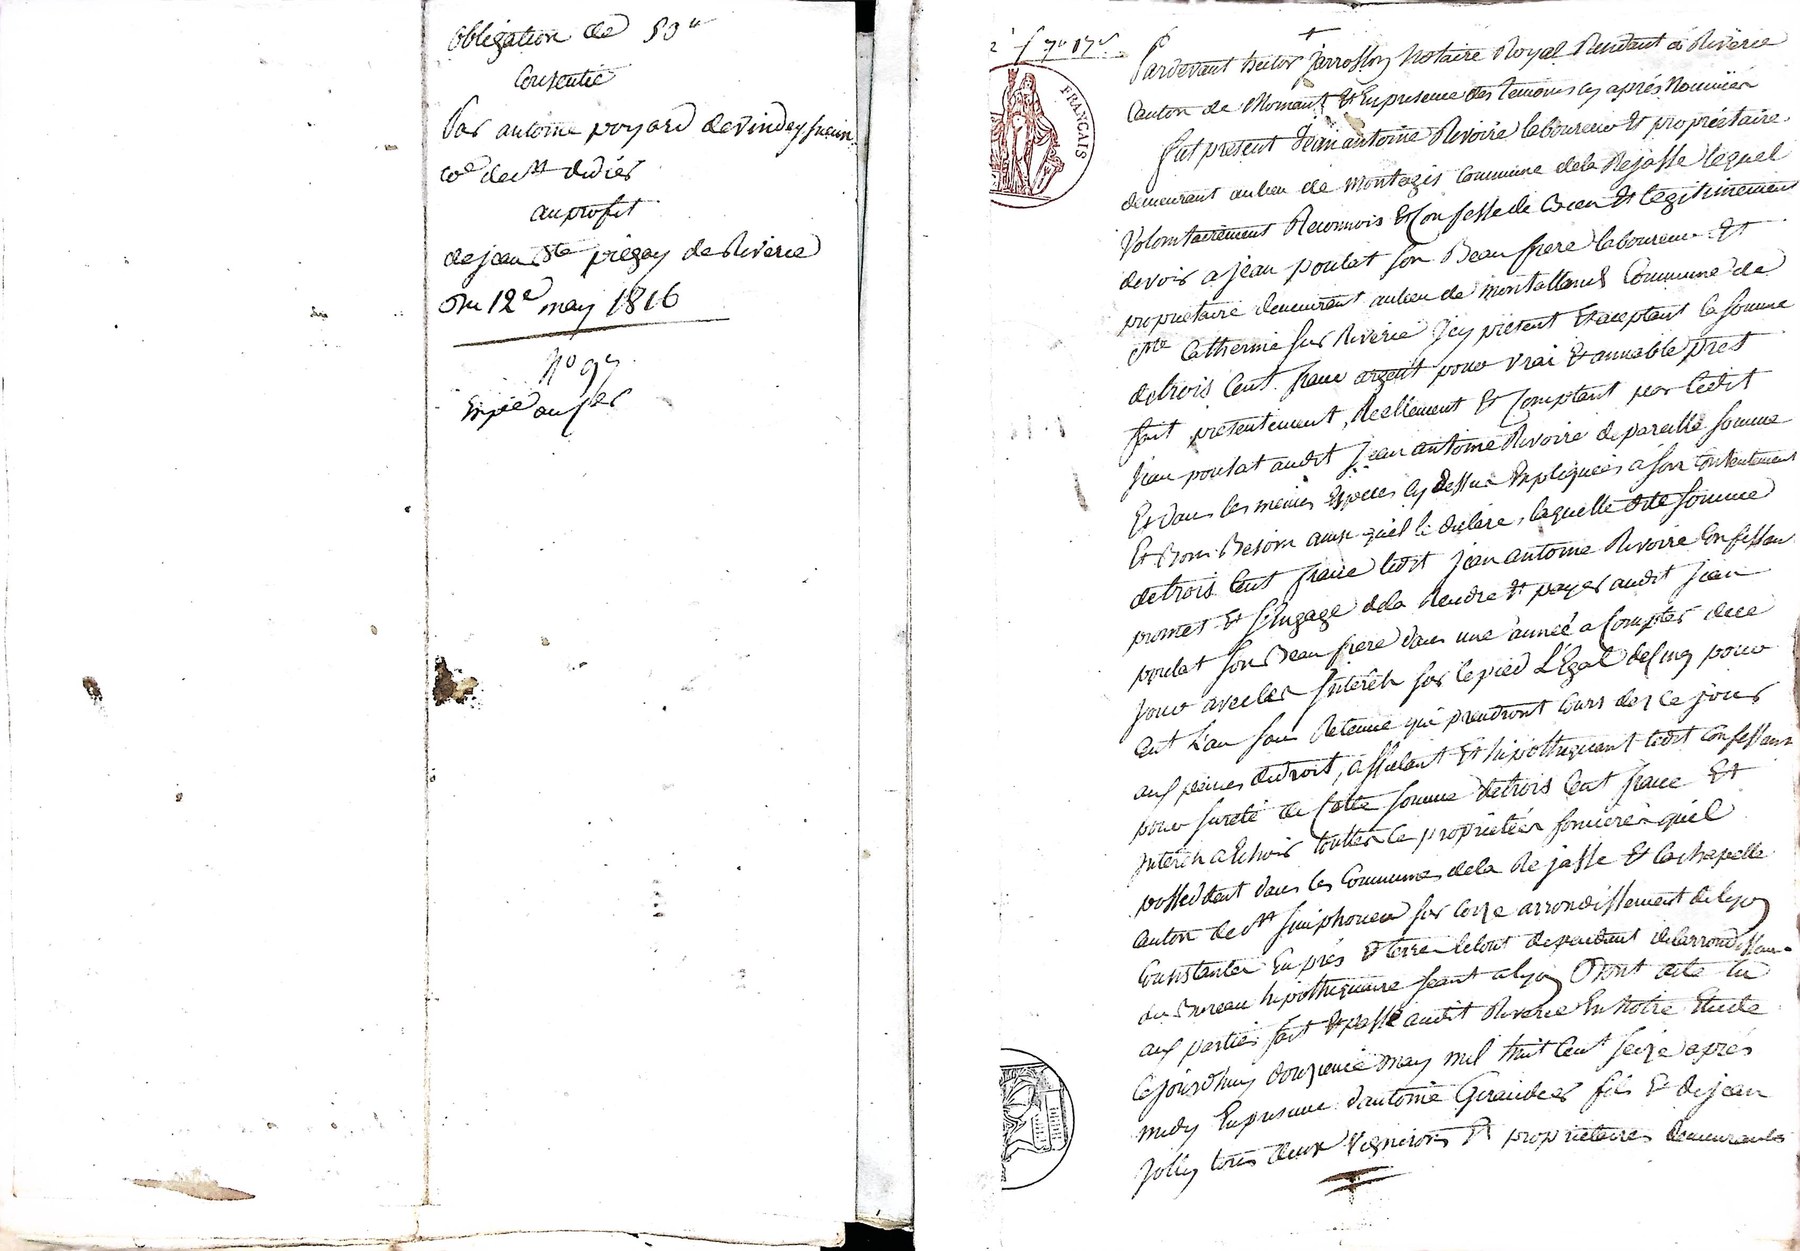 obligation de 50"
Consentie
Par antoine poyard devindey
Coe de st didier
au profit
de jean Bte piegay de Riverie
Du 12e may 1816
No 97
FRANCAIS
Pardevant hector jarrosson Notaire Royal Residant à Riverie
Canton de Mornant Et En presence des temoins cy après Nommées
fut present Jean antoine Rivoire laboureur Et propriétaire
demeurant au lieu de montagis Commune dela Rajasse lequel
Volontairement Reconnois Et Confesse de Bien Et legitimement
devoir a jean poulat son Beau frere laboureur Et
proprietaire demeurant au lieu de montalland Commune de
ste Catherine sur Riverie Icy present Et aceptant la somme
detrois Cent franc argent pour vrai Et amiable prest
fait presentement, Reellement Et Comptant par ledit
jean poulat audit Jean antoine Rivoire de pareille somme
Et dans les memes Especes cy dessus Expliquées a son Contentement
Et Bon Besoin ainsi quil le declare, laquelle dite somme
detrois Cent franc ledit jean antoine Rivoire Confessan
promet Et s'Engage dela Rendre Et payer audit jean
poulat son Beau frere dans une année a Compter dece
jour avec les Interêts sur le pied L'Egal de Cinq pour
Cent L'an sans Retenue qui prendront Cours des ce jour
aux peines dudroit, assurant Et hipothequant ledit Confessant
pour sureté de Cette somme detrois Cent franc Et
Interets a Echoir touttes ce proprietées foncieres quil
possedent dans les Communes dela Rajasse Et la chapelle
Canton de st simphorien sur Coise arrondissement de lyon
Consistantes En prés Et terres letout dependant delarrondissem.
du Bureau hipothequaire seant a lyon Dont acte lu
aux parties fait Et passé audit Riverie En Notre Etude
Cejourd'huy douzieme may mil huit Cent seize après
midy En presence d'antoine Giraudier fils Et de jean
Jolly tous deux Vignerons Et proprietaires demeurants